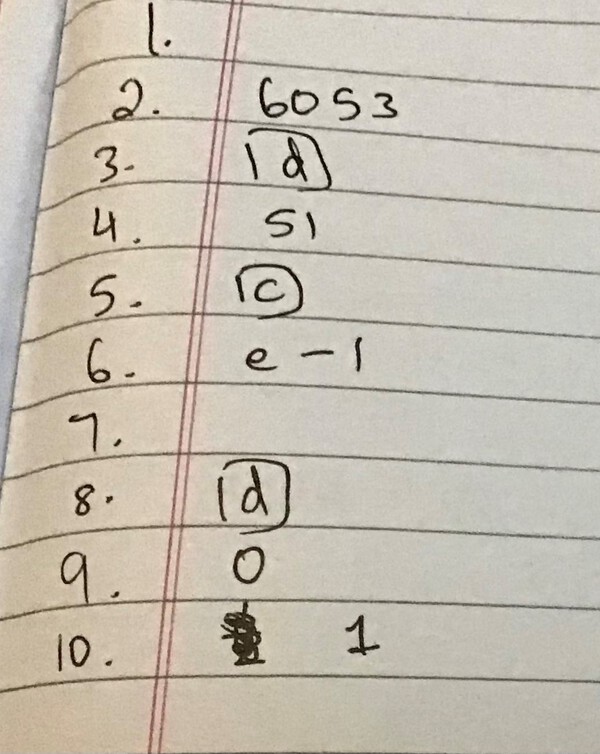 1.
2. 6053
3. d
4. 51
5. c
6. e - 1
7.
8. d
9. 0
10. 1